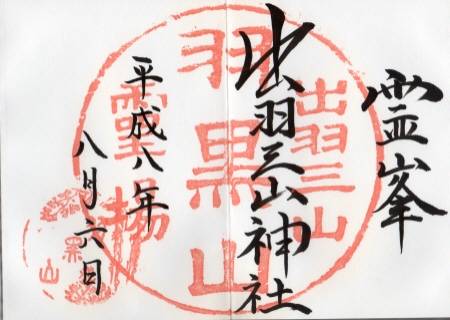 霊峯
出羽三山神社
平成八年
八月六日
出羽三山
羽黒山
霊場
黒
山